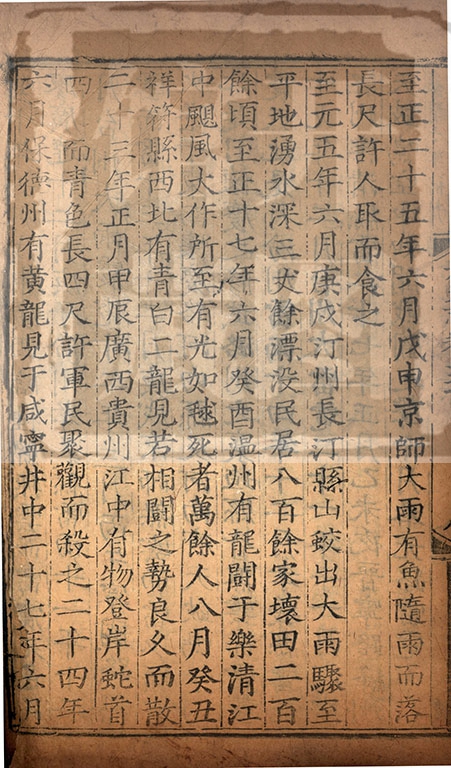 至正二十五年六月戊申京師大雨有魚隨雨而落
長尺許人取而食之
至元五年六月庚戌汀州長汀縣山蛟出大雨驟至
平地湧水深三丈餘漂没民居八百餘家壞田二百
餘頃至正十七年六月癸酉温州有龍鬭于樂清江
中颶風大作所至有光如毬死者萬餘人八月癸丑
祥符縣西北有青白二龍見若相鬭之勢良乆而散
二十三年正月甲辰廣西貴州江中有物登岸蛇首
四 而青色長四尺許軍民聚觀而殺之二十四年
六月保德州有黄龍見于咸寧井中二十七年六月